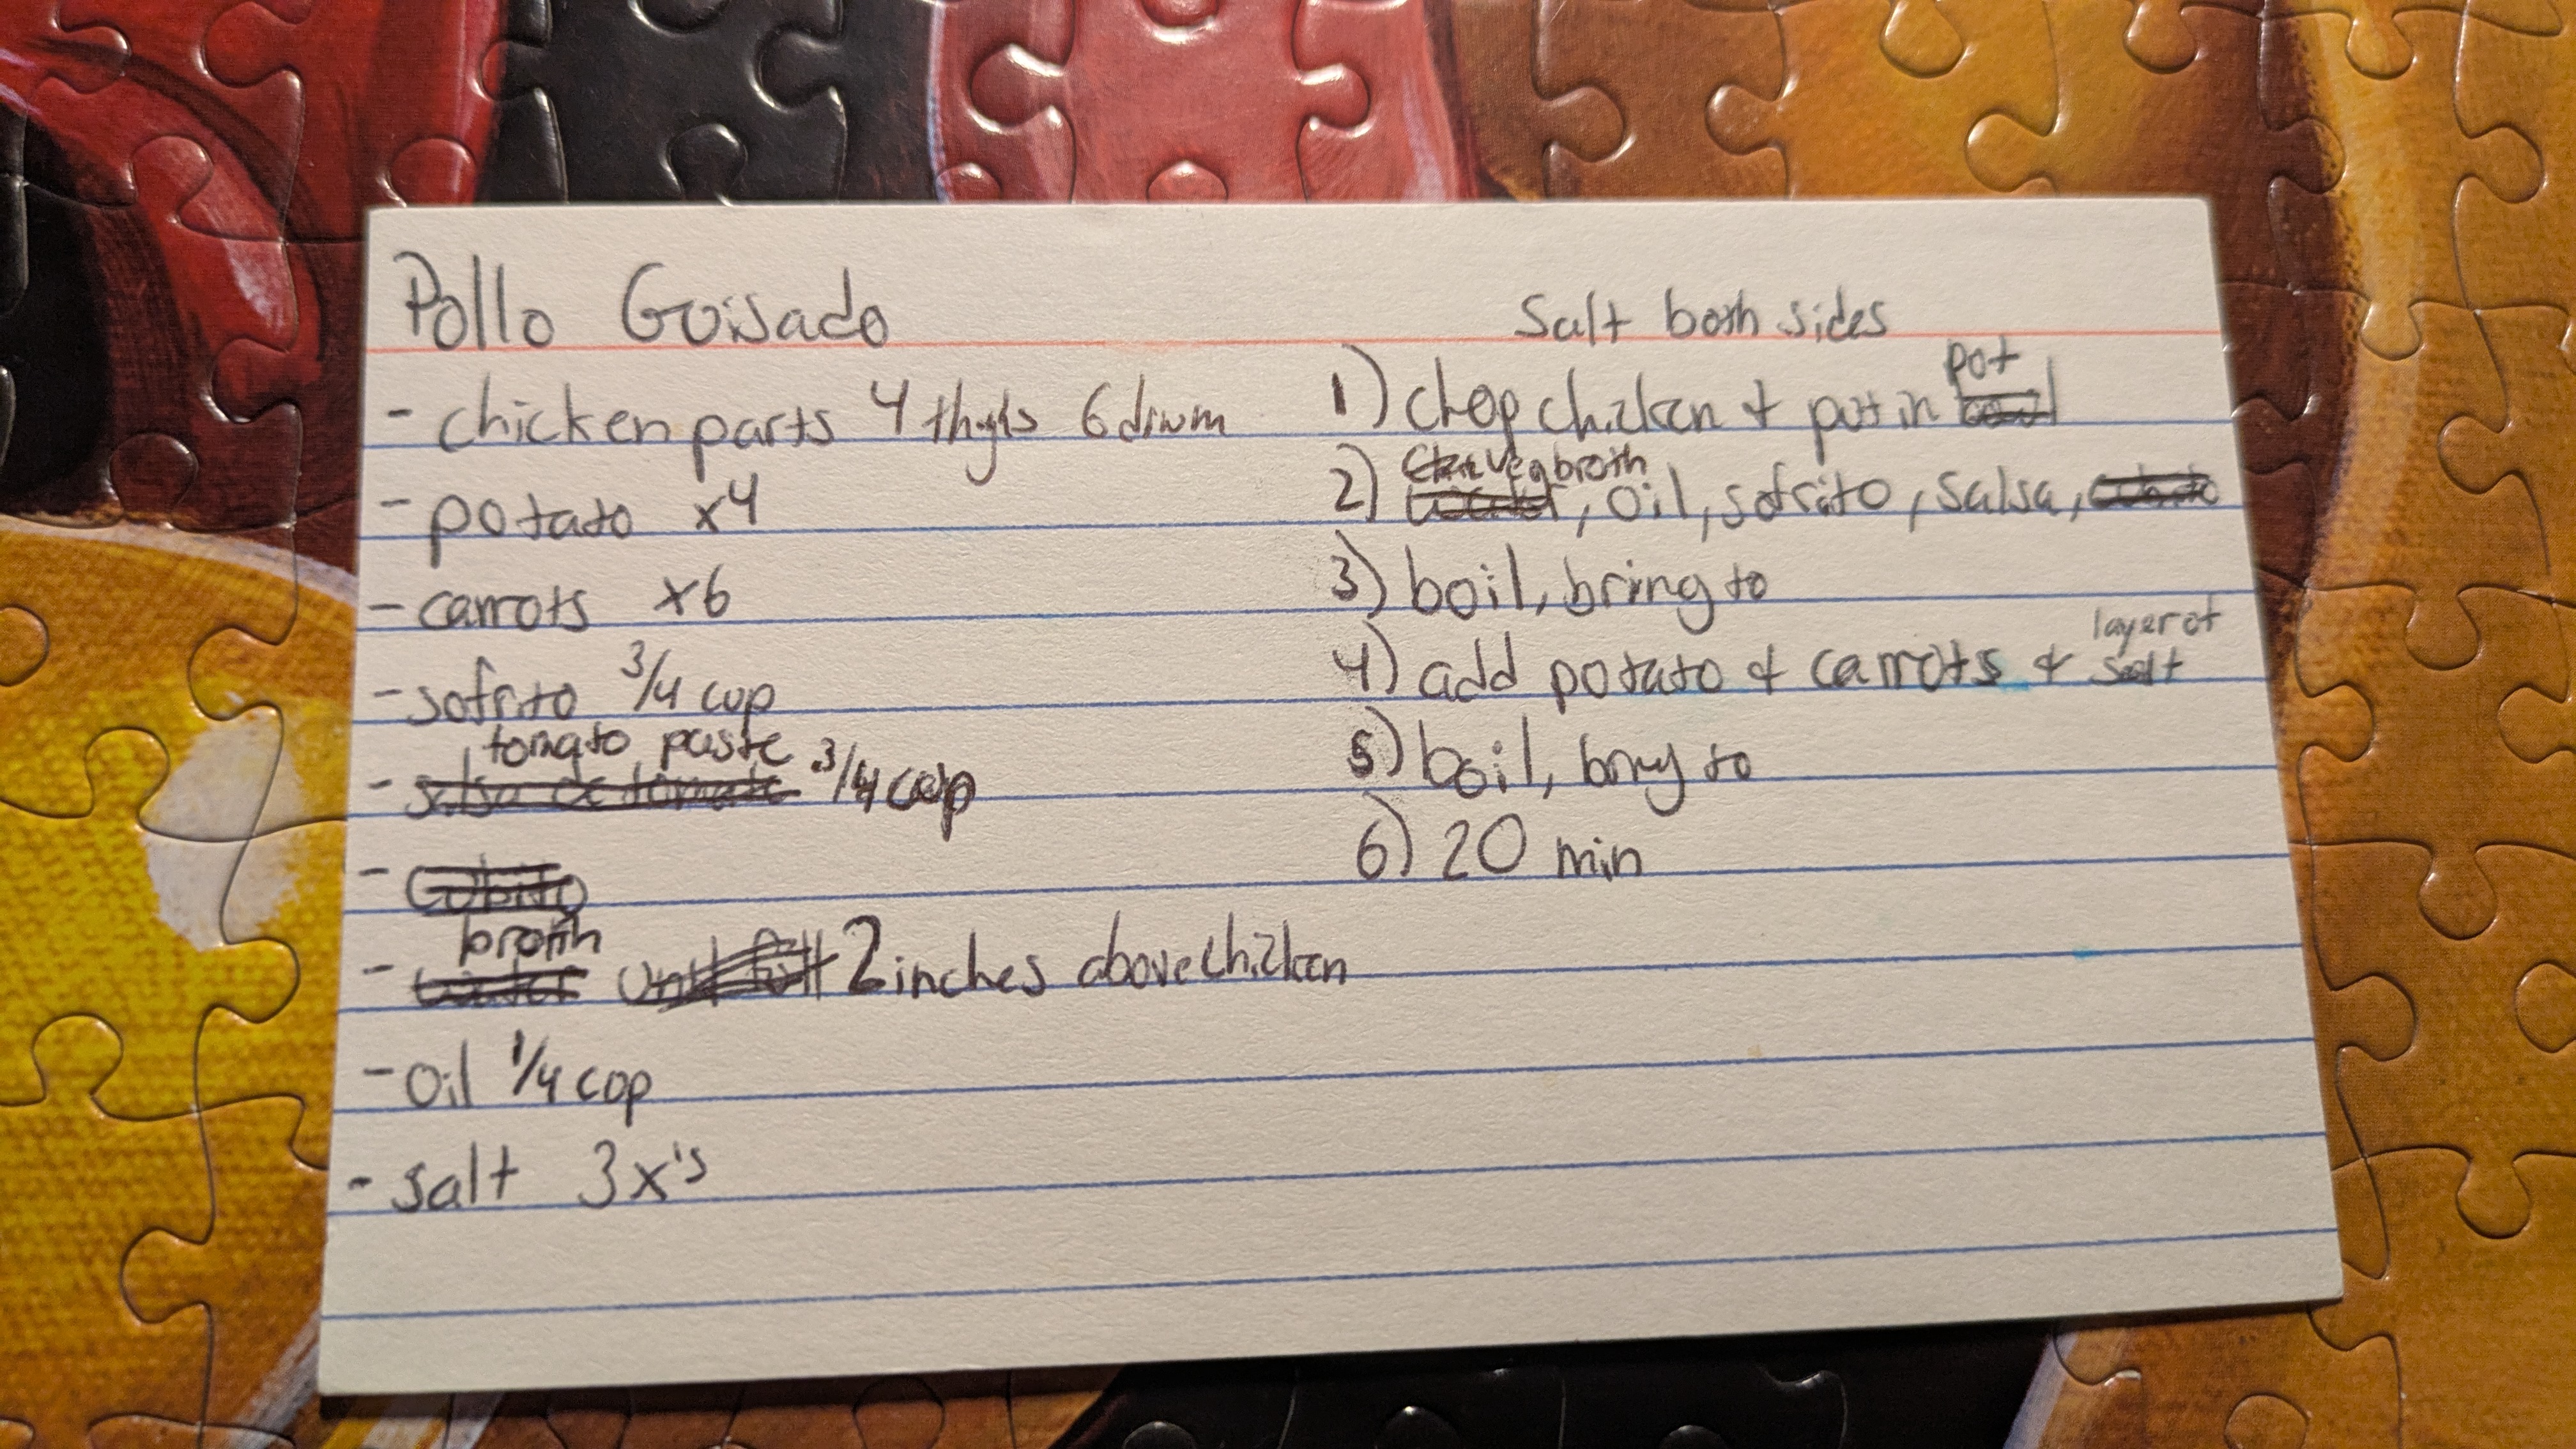 Pollo Guisado
- chicken parts 4 thighs 6 drum
- potato x4
- carrots x6
- sofrito 3/4 cup
tomato paste
- salsa de tomate 3/4 cup
-
broth
- water until full 2 inches above chicken
- oil 1/4 cup
- salt 3x's
Salt both sides
pot
1) chop chicken & put in bowl
veg broth
2) water, oil, sofrito, salsa,
3) boil, bring to
layer of
4) add potato & carrots & salt
5) boil, bring to
6) 20 min